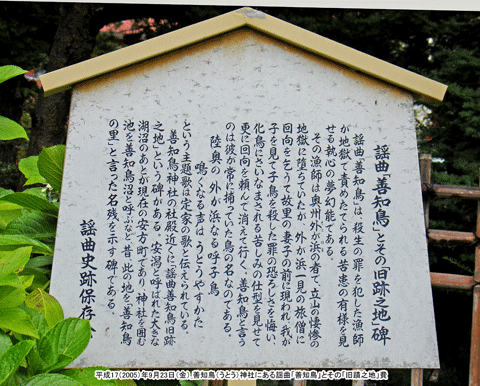 謡曲「善知鳥」とその旧跡之地」碑
謡曲「善知鳥」は、殺生の罪を犯した漁師
が地獄で責めたてられる苦患の有様を見
せる執心の夢幻能である。
その漁師は奥州外が浜の者で、立山の懺悔の
地獄に堕ちていたが、外が浜一見の旅僧に
回向を乞うて故里の妻子の前に現われ、我が
子を見て子鳥を殺した罪の恐ろしさを悔い、
化鳥にさいなまされる苦しみの仕型を見せて
更に回向を頼んで消えて行く。善知鳥と言う
のは彼が常に捕っていた鳥の名なのである。
陸奥の外が浜なる呼子鳥
鳴くなる声はうとうやすかた
という主題歌は定家の歌と伝えられている。
善知鳥神社の社殿近くに「謡曲善知鳥旧跡
之地」という碑がある。安潟と呼ばれた大きな
湖沼のあとが現在の安方町であり、神社を囲む
池を善知鳥沼と呼ぶなど、昔、此の地を「善知鳥
の里」と言った名残を示す碑である。
謡曲史跡保存会
平成17(2005)年9月23日(金)、善知鳥(うとう)神社にある謡曲「善知鳥」とその「旧蹟之地」費